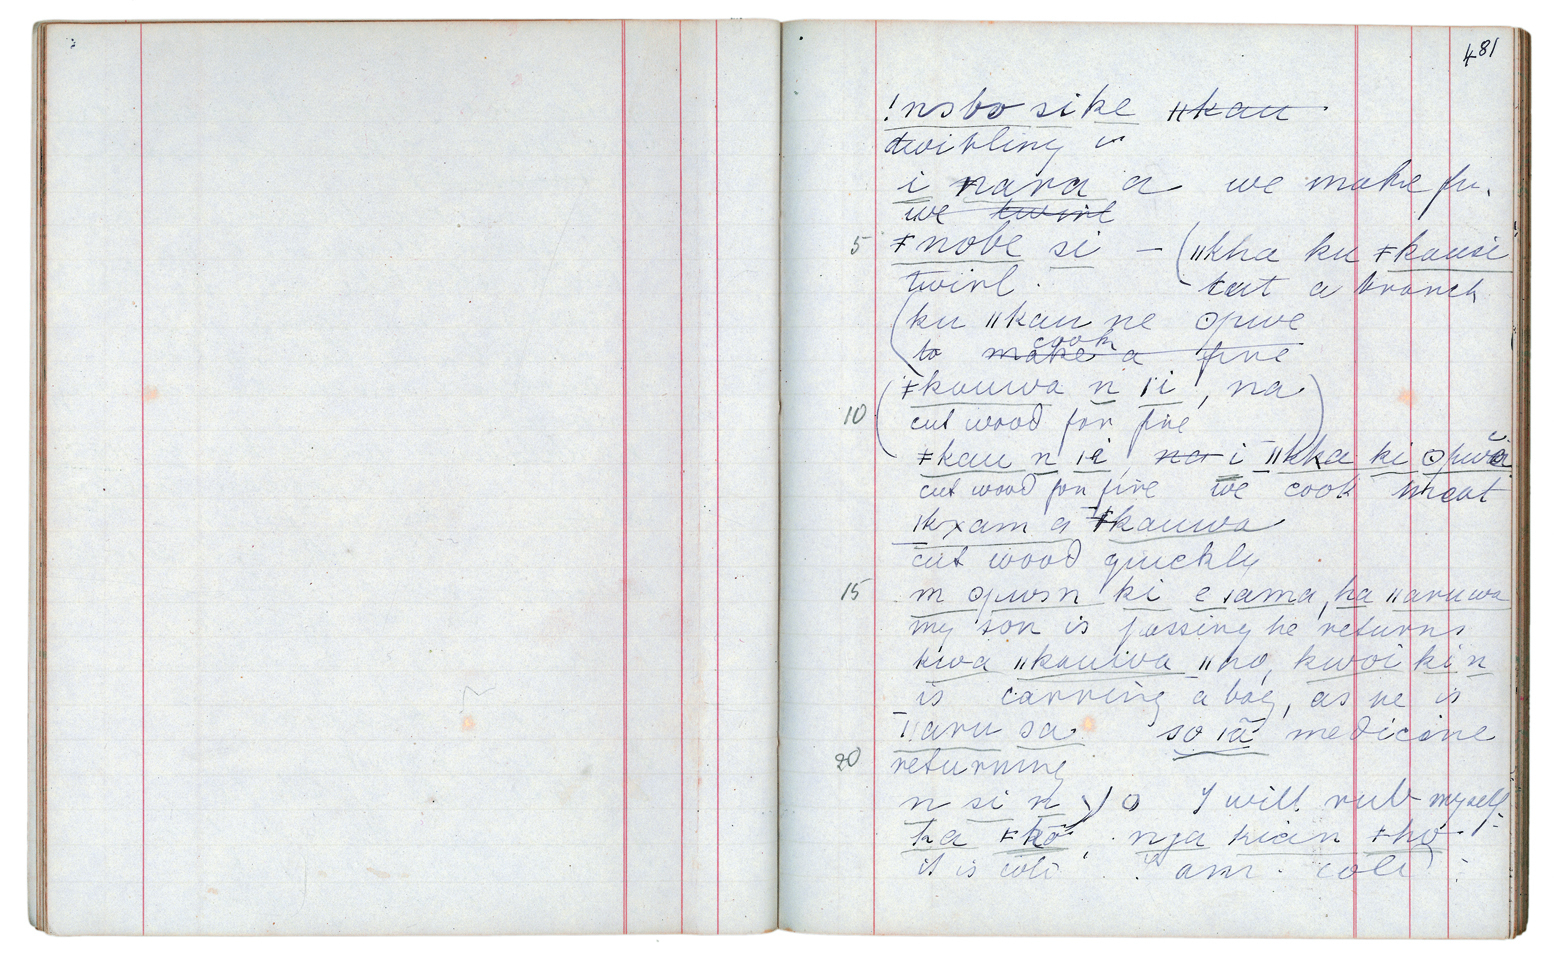 481
!nsbo si ke ǁkau
twirling is
i nara a we make fir.
we twirl
5 ǂnobe si — (ǁkha ku ǂkausi
twirl. cut a branch
(ku ǁkau ne ʘpwe
to make a fire cook
(ǂkauwa n ǀi, na)
10 cut wood for fire
ǂkau n ǀi, na i ǁkha ki ʘpwa
cut wood for fire we cook meat
ǀkxam a ǂkauwa
cut wood quickly
15 m ʘpwsn ki e ǀama, ha ǁaruwa
my son is passing he returns
kwa ǁkauwa ǁho, kwoi ki n
is carrying a bag, as he is
ǁaru sa so ǀã medicine
20 returning
n si n I will rub myself
ha ǂkō, nja kian ǂho
it is cold I am cold